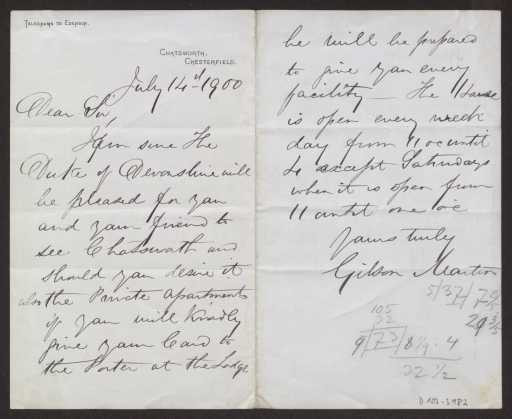 TELEGRAMS TO EDENSOR.
CHATSWORTH,
CHESTERFIELD.
July 14th 1900
Dear Sir,
I am sure the
Duke of Devonshire will
be pleased for you
and your friend to
see Chatsworth and
should you desire it
also the Private apartments
if you will kindly
give your Card to
the Porter at the Lodge
he will be prepared
to give you every
facility — The House
is open every week
day from 11 oc until
4 except Saturdays
when it is open from
11 until one o'c
Yours truly
Gilson Martin
105
22 1/2
D 102-3982